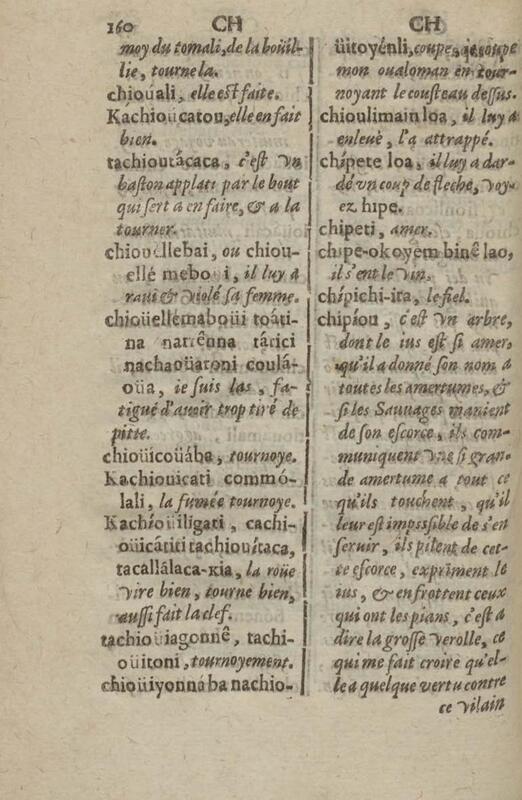 160 CH CH
moy du tomali, de la boüil-
lie, tourne la.
chioüali, elle est faite.
Kachioücatou, elle en fait
bien.
tachioutácaca, c'est vn
baston applati par le bout
qui sert a en faire, & a la
tourner.
chiouellebai, ou chiou-
ellé meboui, il luy a
raui & violé sa femme.
chioüellemaboüi toáti-
na
nachaoüaroni coulá-
oüa, ie suis las, fa-
tigué d'auoir trop tiré de
pitte.
chioüicoüába, tournoye.
Kachiouicati commó-
lali, la fumée tournoye.
Kachíoüiligati, cachi-
oüicátiti tachiouítaca,
tacallálaca-kia, la roüe
vire bien, tourne bien,
aussi fait la clef.
tachioüiagonnê, tachi-
oüitoni, tournoyement.
chioüiyonnába nachio-
üitoyénli, coupe, je coupe
mon oualoman en tour-
noyant le cousteau dessus.
chioulimain loa, il luy a
enleué, l'a attrappé.
chípete loa, il luy a dar-
dé vn coup de fleche, voy-
ez hipe.
chipeti, amer.
chipe-okoyem binê lao,
il s'ent le vin.
chípichi-ita, le fiel.
chipíou, c'est vn arbre,
dont le ius est si amer,
qu'il a donné son nom a
toutes les amertumes, &
si les Sauuages manient
de son escorce, ils com-
muniquent vne si gran-
de amertume a tout ce
qu'ils touchent, qu'il
leur est impossible de s'en
seruir, ils pilent de cet-
te escorce, expriment le
ius, & en frottent ceux
qui ont les pians, c'est a
dire la grosse verolle, ce
qui me fait croire qu'el-
le a quelque vertu contre
ce vilain